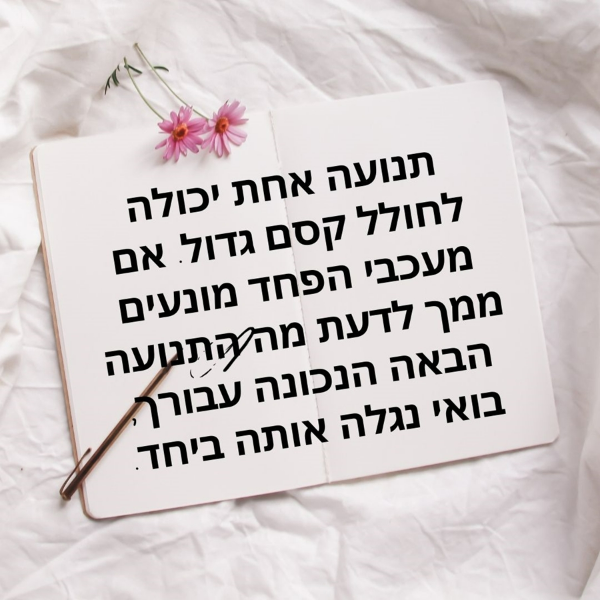 תנועה אחת יכולה
לחולל קסם גדול. אם
מעכבי הפחד מונעים
ממך לדעת מה התנועה
הבאה הנכונה עבורך,
בואי נגלה אותה ביחד.